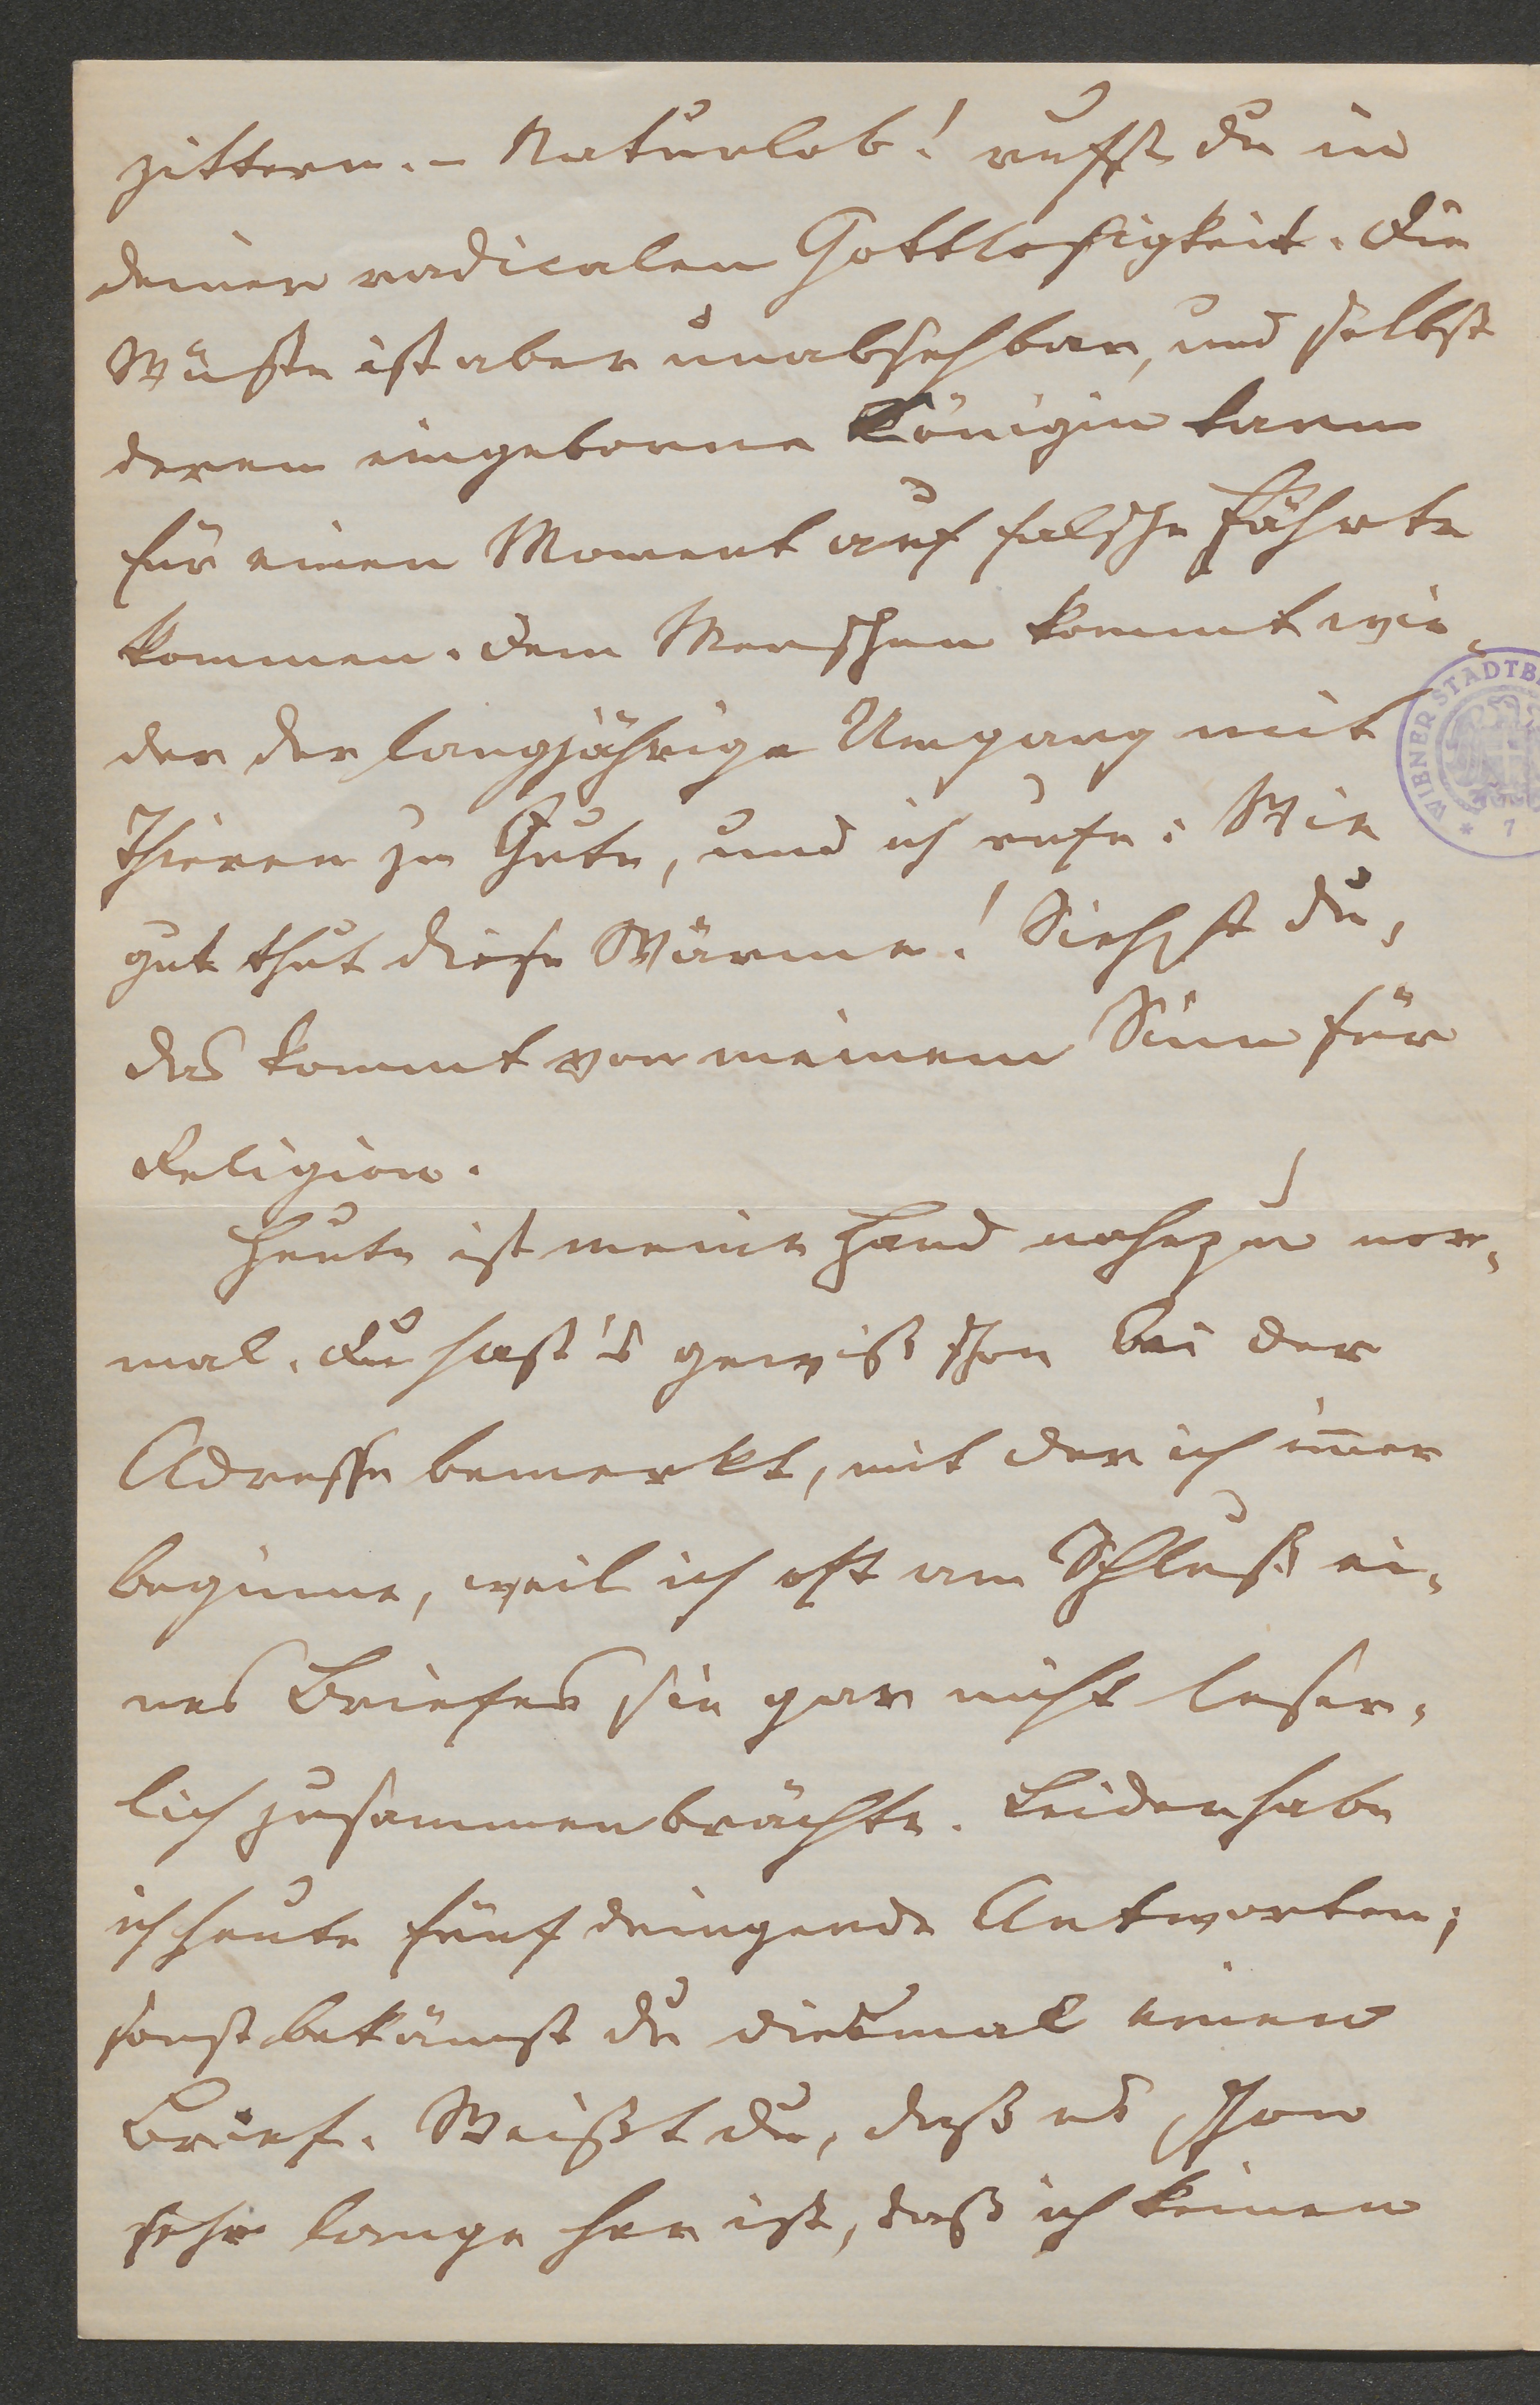 zittern. – Naturlob! rufst du in
deiner radicalen Gottlosigkeit. Die
Wüste ist aber unabsehbar, und selbst
deren eingeborne Königin kann
für einen Moment auf falsche Fährte
kommen. Dem Menschen kommt wie-
der der langjährige Umgang mit
Thieren zu Gute, und ich rufe: Wie
gut thut diese Wärme! Siehst du,
das kommt von meinem Sinn für
Religion.
Heute ist meine Hand nahezu nor-
mal. Du hast's gewiß schon bei der
Adresse bemerkt, mit der ich im̄er
beginne, weil ich oft am Schluß ei-
nes Briefes sie gar nicht leser-
lich zusammenbrächte. Leider habe
ich heute fünf dringende Antworten;
sonst bekämst du diesmal einen
Brief. Weißt du, daß es schon
sehr lange her ist, daß ich keinen
WIENER STADTB
* 7